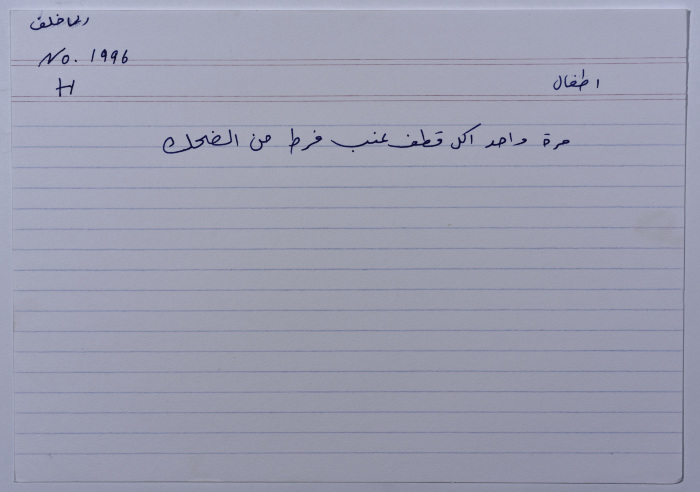 ريما خلف
No. 1996
H
اطفال
مرة واحد اكل قطف عنب فرط من الضحك